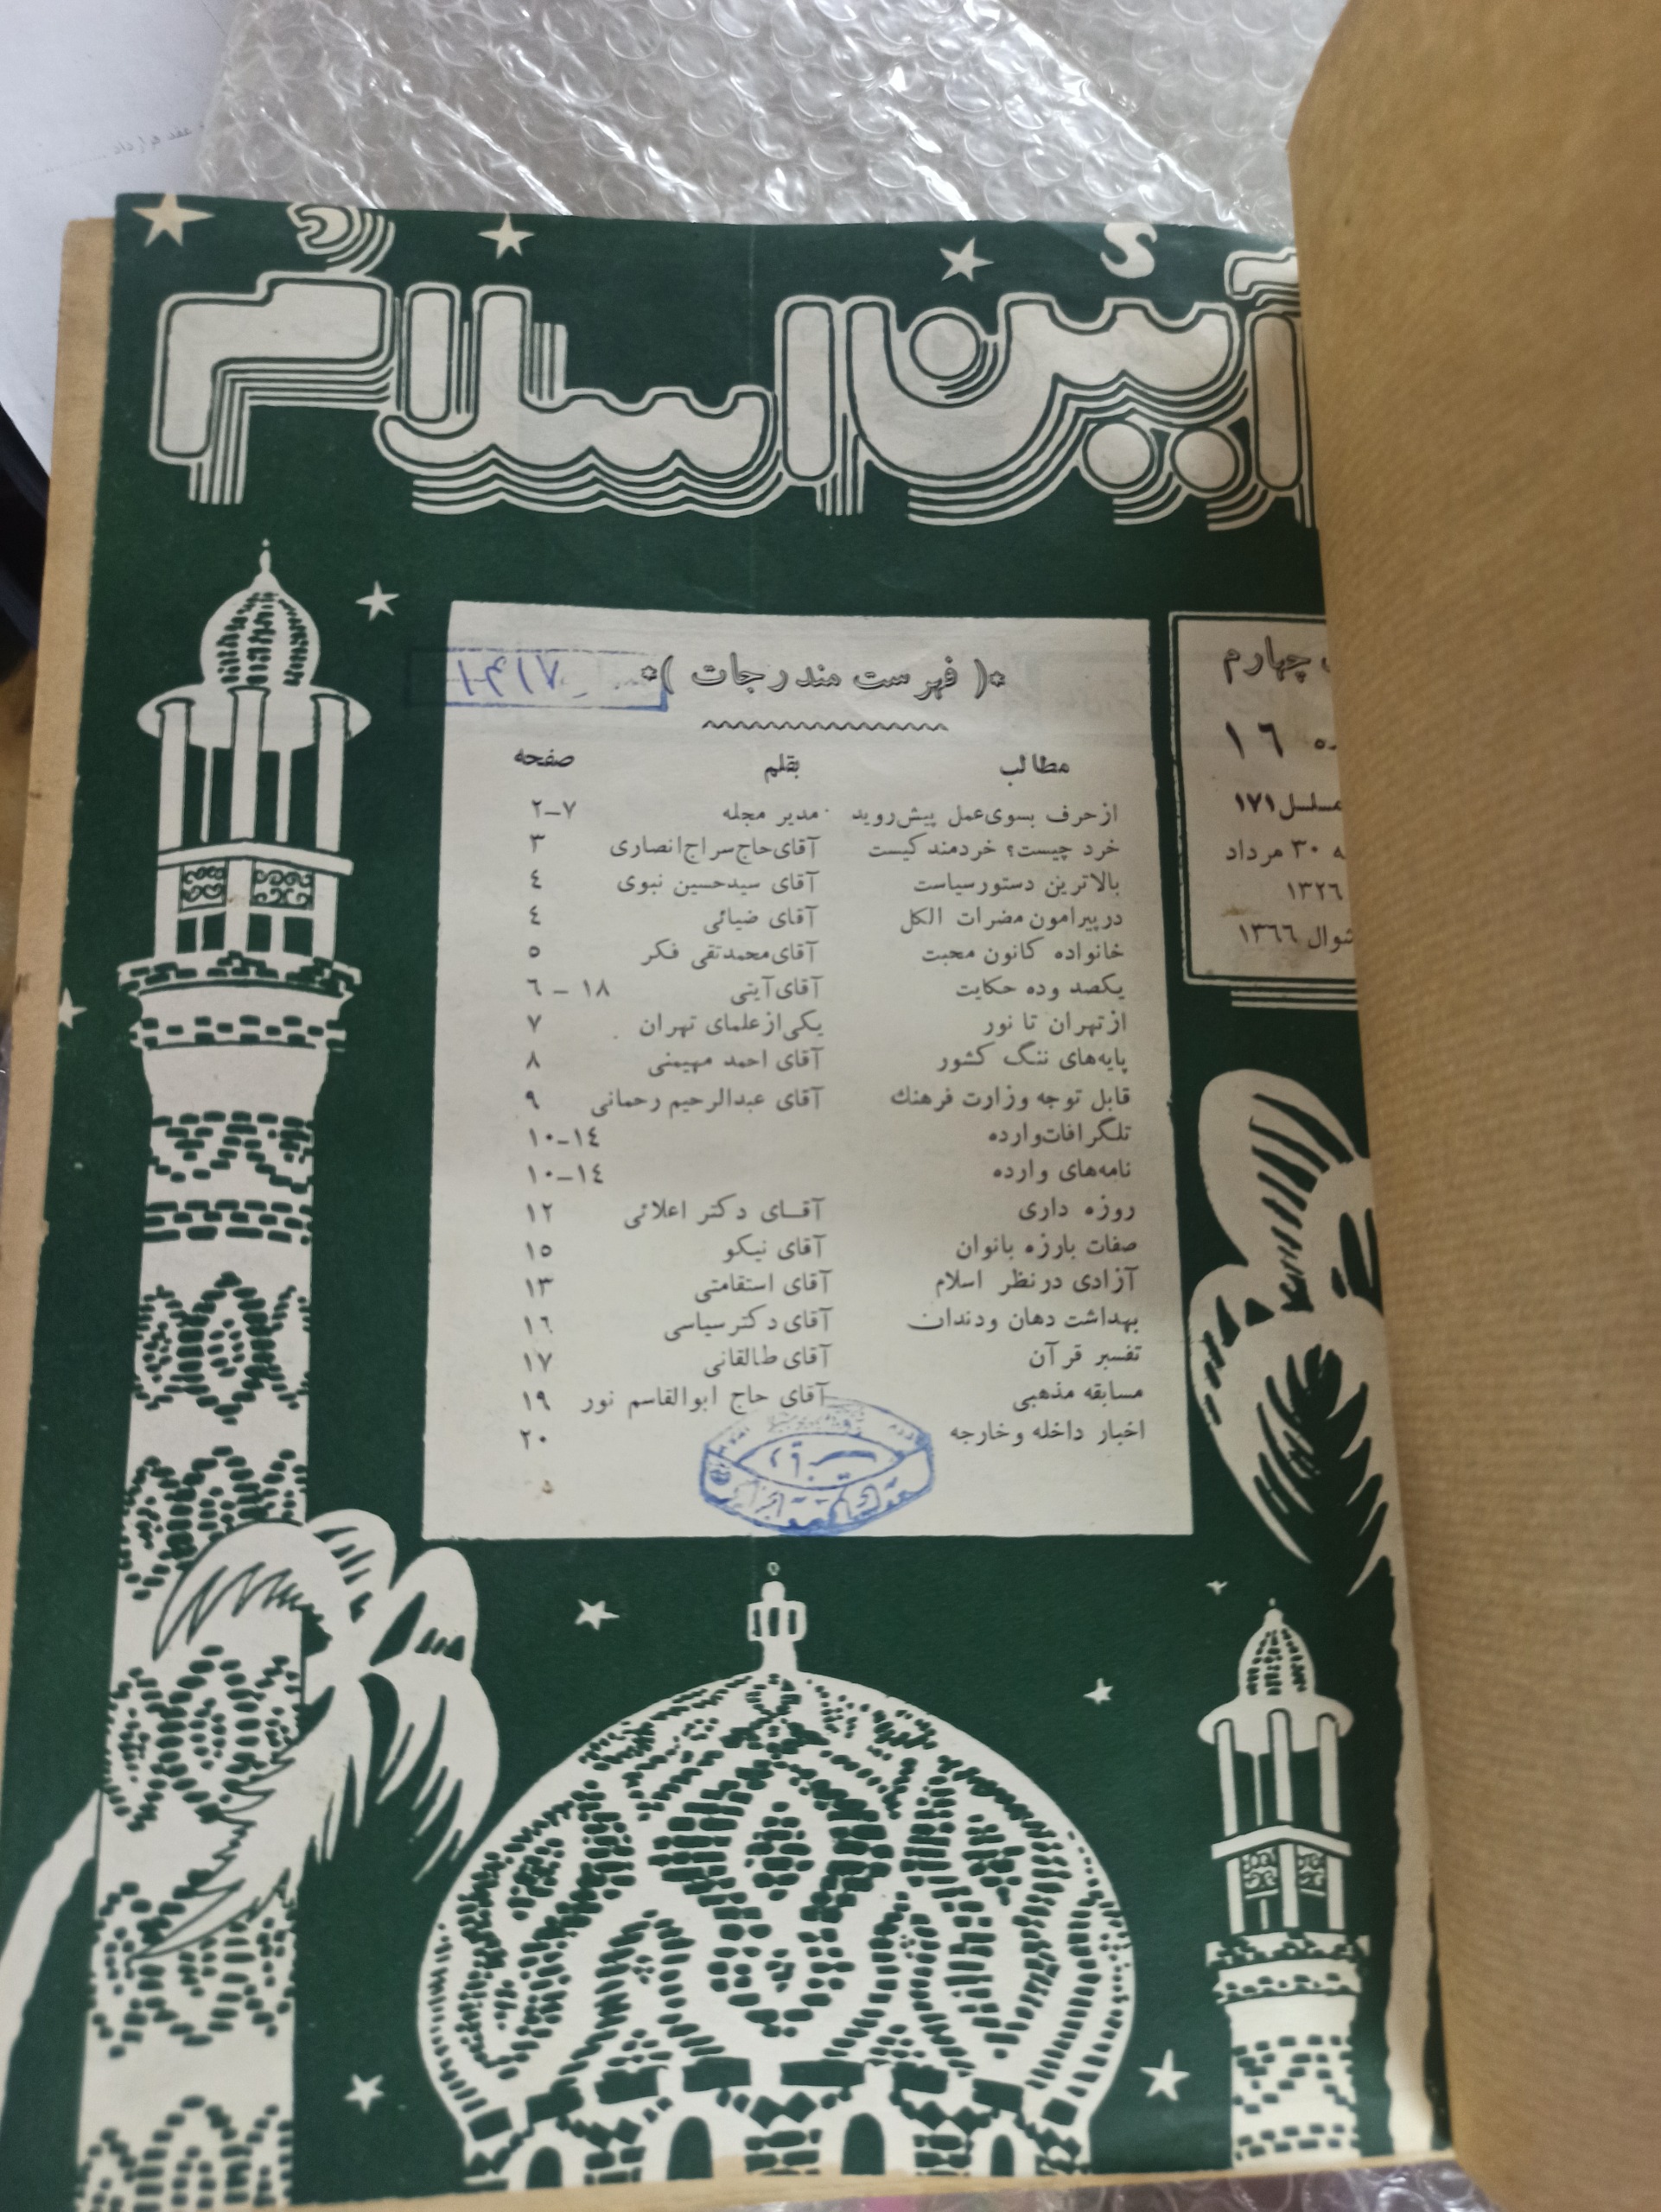 آئین اسلام
چهارم
۱۶
مسلسل ۱۷۱
۳۰ مرداد
۱۳۲۶
شوال ۱۳۶۶
*( فهرست مندرجات )*
مطالب بقلم صفحه
از حرف بسوی عمل پیش روید مدیر مجله ۲-۷
خرد چیست؟ خردمند کیست آقای حاج سراج انصاری ۳
بالاترین دستور سیاست آقای سیدحسین نبوی ٤
در پیرامون مضرات الکل آقای ضیائی ٤
خانواده کانون محبت آقای محمدتقی فکر ٥
یکصد و ده حکایت آقای آیتی ٦ - ۱۸
از تهران تا نور یکی از علمای تهران ۷
پایه‌های ننگ کشور آقای احمد مهیمنی ۸
قابل توجه وزارت فرهنك آقای عبدالرحیم رحمانی ۹
تلگرافات وارده ۱۰-۱٤
نامه‌های وارده ۱۰-۱٤
روزه داری آقـای دکتر اعلائی ۱۲
صفات بارزه بانوان آقای نیکو ۱٥
آزادی در نظر اسلام آقای استقامتی ۱۳
بهداشت دهان و دندان آقای دکتر سیاسی ۱٦
تفسیر قرآن آقای طالقانی ۱۷
مسابقه مذهبی آقای حاج ابوالقاسم نور ۱۹
اخبار داخله و خارجه ۲۰